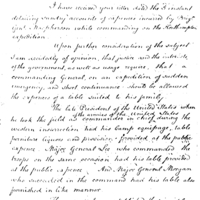 I have received your letter dated the 8th instant
detaining vouchers & accounts of expences incurred by Brigr
Genl. McPherson while commanding on the Northampton
expedition
Upon further consideration of the subject
I am decidedly of opinion, that justice and the credit
of the government, as well as usage require, that a
commanding General, on an expedition of sudden
emergency, and short continuance should be allowed
the expences of a table suited to his family.
The late President of the United States when
he took the field as commander in chief during the
of the armies of the United States
western insurrection had his Camp equipage, table
furniture liquors and provisions, provided at the public
expence. Major General Lee who commanded the
troops on the same occasion had his table provided
at the public expence. And Major General Morgan
who succeeded in the command had his table also
furnished in like manner